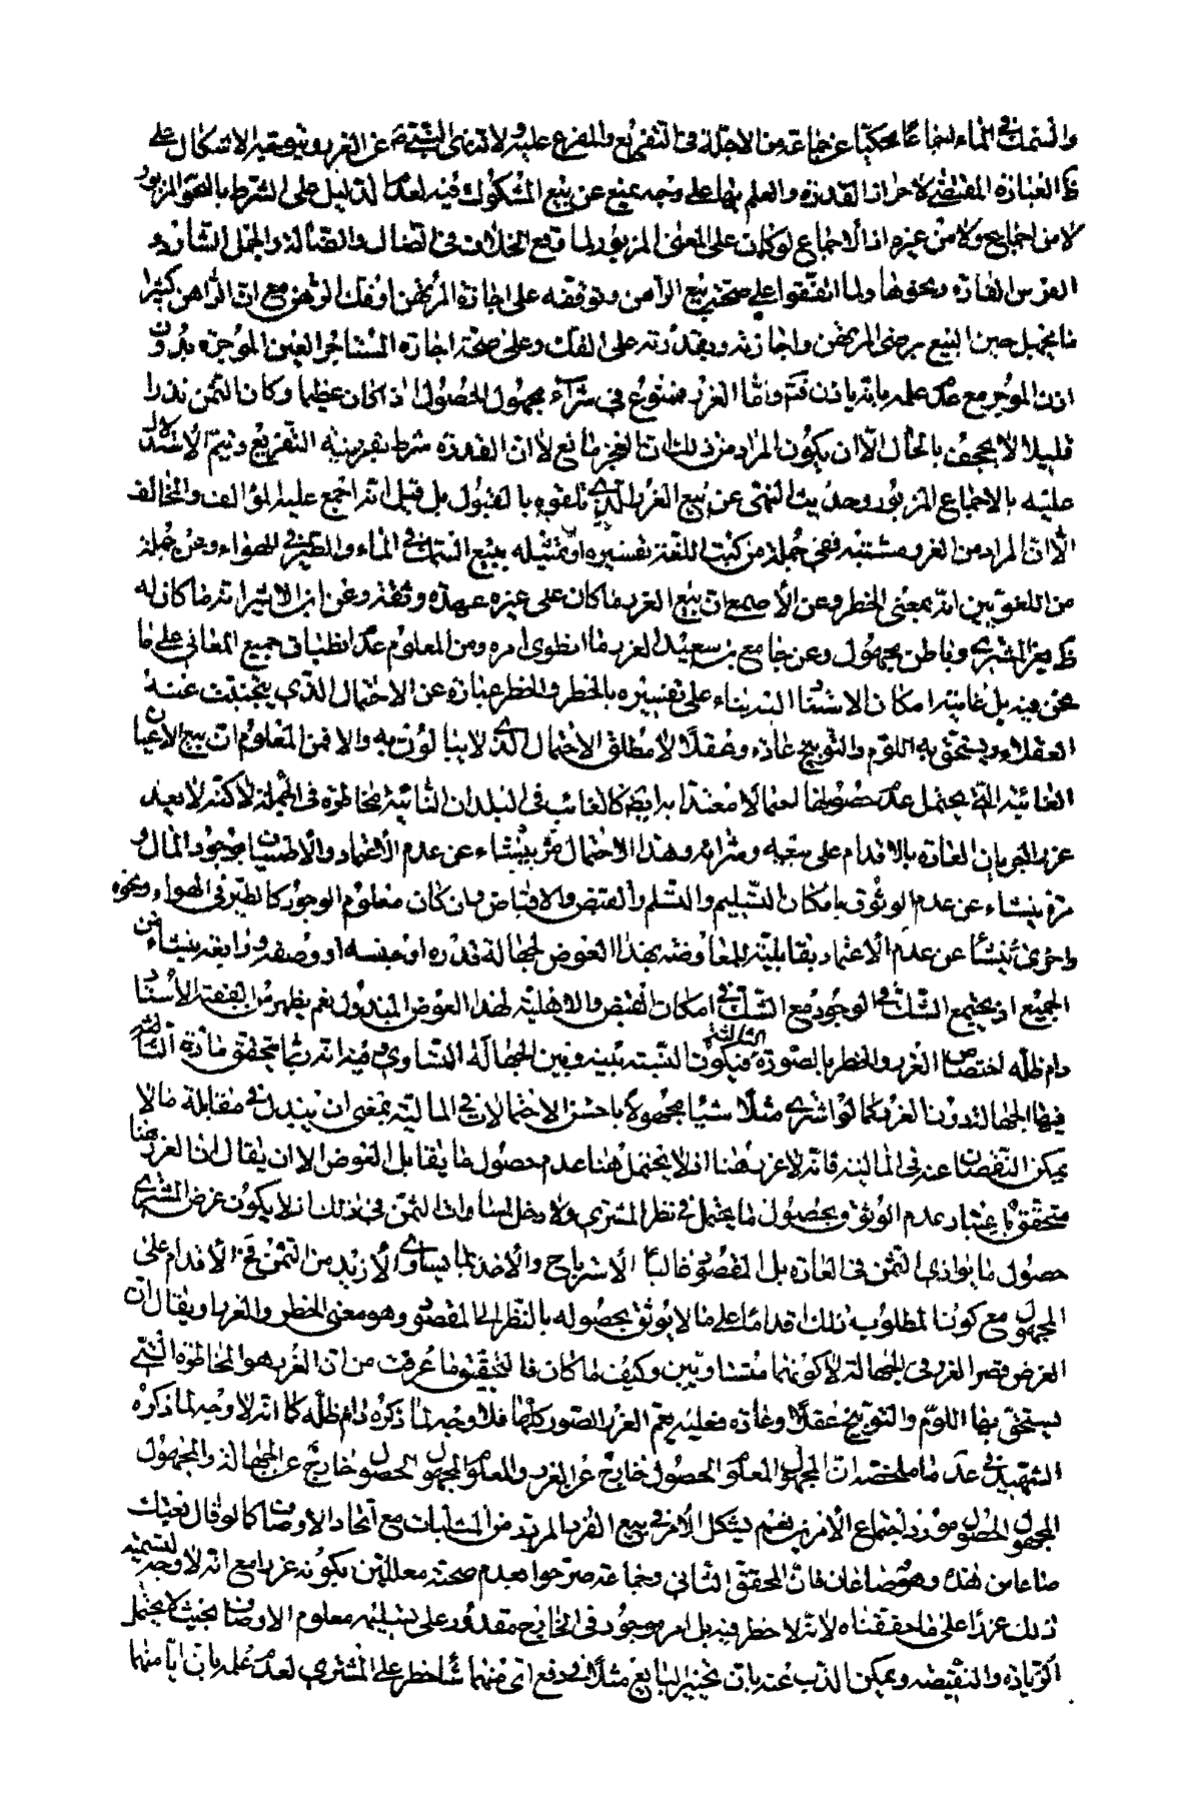 والسمك في الماء اجماعا محكيا عن جماعة من الاجلة في التفريع والمفرع عليه ولا تردى عن الغرر وتوقيه الاشكال على
ظ العبارة المقتضية لاحراز القدرة والعلم بها على وجه يمنع عن بيع المشكوك فيه لعدم الدليل على الشرط بالنحو المزبور
لا من اجماع ولا من غيره اذ الاجماع لو كان على المعنى المزبور لما وقع الخلاف في الضال والضالة والجمل الشارد و
الفرس الغائرة ونحوها ولما اتفقوا على صحة بيع الراهن وتوقفه على اجازة المرتهن او فك الرهن مع ان الراهن كثيرا
ما يجهل حين البيع برضى المرتهن واجازته وبقدرته على الفك وعلى صحة اجازة المستاجر العين الموجرة بدون
اذن الموجر مع عدم علمه بانه ياذن فتم واما الغرر فممنوع في شراء مجهول الحصول اذا كان عظيما وكان الثمن نذرا
قليلا لا يجحف بالحال الا ان يكون المراد من ذلك ان العجز مانع لا ان القدرة شرط بقرينة التفريع ويتم الاستدلال
عليه بالاجماع المزبور وحديث النهى عن بيع الغرر الذي تلقوه بالقبول بل قيل انه اجمع عليه المؤالف والمخالف
الا ان المراد من الغرر مشتبه ففي جملة من كتب اللغة تفسيره او تمثيله ببيع السمك في الماء والطير في الهواء وعن جملة
من اللغويين انه بمعنى الخطر وعن الأصمعي ان بيع الغرر ما كان على غير عهدة وثقة وعن ابن الاثير انه ما كان له
ظ يغر المشتري وباطن مجهول وعن جامع بن سعيد الغرر ما انطوى امره ومن المعلوم عدم انطباق جميع المعاني على ما
نحن فيه بل غايته امكان الاستناد اليه بناء على تفسيره بالخطر والخطر عبارة عن الاحتمال الذي يجتنب عنه
العقلاء ويستحق به اللوم والتوبيخ عادة وعقلا لا مطلق الاحتمال الذي لا يبالون به والا فمن المعلوم ان بيع الأعيان
الغائبة التي يحتمل عدم حصولها احتمالا معتدا به ايضا كالغائب في البلدان النائية مخاطرة في الجملة لاكنه لا يعد
غررا لجريان العادة بالاقدام على بيعه وشرائه وهذا الاحتمال مرة ينشاء عن عدم الاعتماد والاطمينان بوجود المال و
مرة ينشاء عن عدم الوثوق بامكان التسليم والتسلم والقبض والاقباض وان كان معلوم الوجود كالطير في الهواء ونحوه
واخرى ينشأ عن عدم الاعتماد بقابليته للمعاوضة بهذا العوض لجهالة قدره او جنسه او وصفه ورابعة ينشاء عن
الجميع اذ يجتمع الشك في الوجود مع الشك في امكان القبض والاهلية لهذا العوض المبذول نعم يظهر من الفقيه الأستاد
دام ظله اختصاص الغرر والخطر بالصورة الثالثة فيكون النسبة بينه وبين الجهالة التساوي وفيه انه ربما يتحقق مادة
فيها الجهالة دون الغرر كما لو اشترى مثلا شيئا مجهولا باخس الاحتمالات في المالية بمعنى ان يبذل في مقابلة ما لا
يمكن النقصان عنه في المالية فانه لا غرر هنا اذ لا يحتمل هنا عدم حصول ما يقابل العوض الا ان يقال ان الغرر هنا
متحقق باعتبار عدم الوثوق بحصول ما يحتمل في نظر المشتري ولا دخل لمساوات الثمن في ذلك اذ لا يكون غرض المشتري
حصول ما يوازي الثمن في العادة بل المقصود غالبا الاسترباح والأخذ بما يساوي الأزيد من الثمن فح الأقدام على
المجهول مع كون المطلوب ذلك اقداما على ما لا يوثق بحصوله بالنظر الى المقصود وهو معنى الخطر والغرر او يقال ان
الغرض قصر الغرر في الجهالة لا كونهما متساويين وكيف ما كان فالتحقيق ما عرفت من ان الغرر هو المخاطرة التي
يستحق بها اللوم والتوبيخ عقلا وعادة فعليه يعم الغرر الصور كلها فلا وجه لما ذكره دام ظله كما انه لا وجه لما ذكره
الشهيد في عد ما ملخصه ان المجهول المعلوم الحصول خارج عن الغرر والمعلوم المجهول الحصول خارج عن الجهالة والمجهول
المجهول الحصول مورد اجتماع الأمرين نعم يشكل الأمر في بيع الفرد المردد من المثليات مع اتحاد الاوصاف كما لو قال بعتك
صاعا من هذه وهو صاعان فان المحقق الثاني وجماعة صرحوا بعدم صحته معللين بكونه غررا مع انه لا وجه لتسمية
ذلك غررا على ما حققناه لانه لا خطر فيه بل امر موجود في الخارج مقدور على تسليمه معلوم الاوصاف بحيث لا يحتمل
الزيادة والنقيصة ويمكن الذب عنه بان تخيير البايع مثلا في دفع اى منهما شاء خطر على المشتري لعدم علمه بان ايا منهما